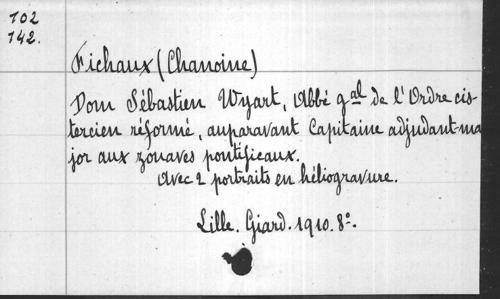 102
142.
Fichaux (Chanoine)
Dom Sébastien Wyart, Abbé gal de l'Ordre cis-
tercien réformé, auparavant Capitaine adjudant-ma
jor aux zouaves pontificaux.
Avec 2 portraits en héliogravure.
Lille. Giard. 1910. 8º.